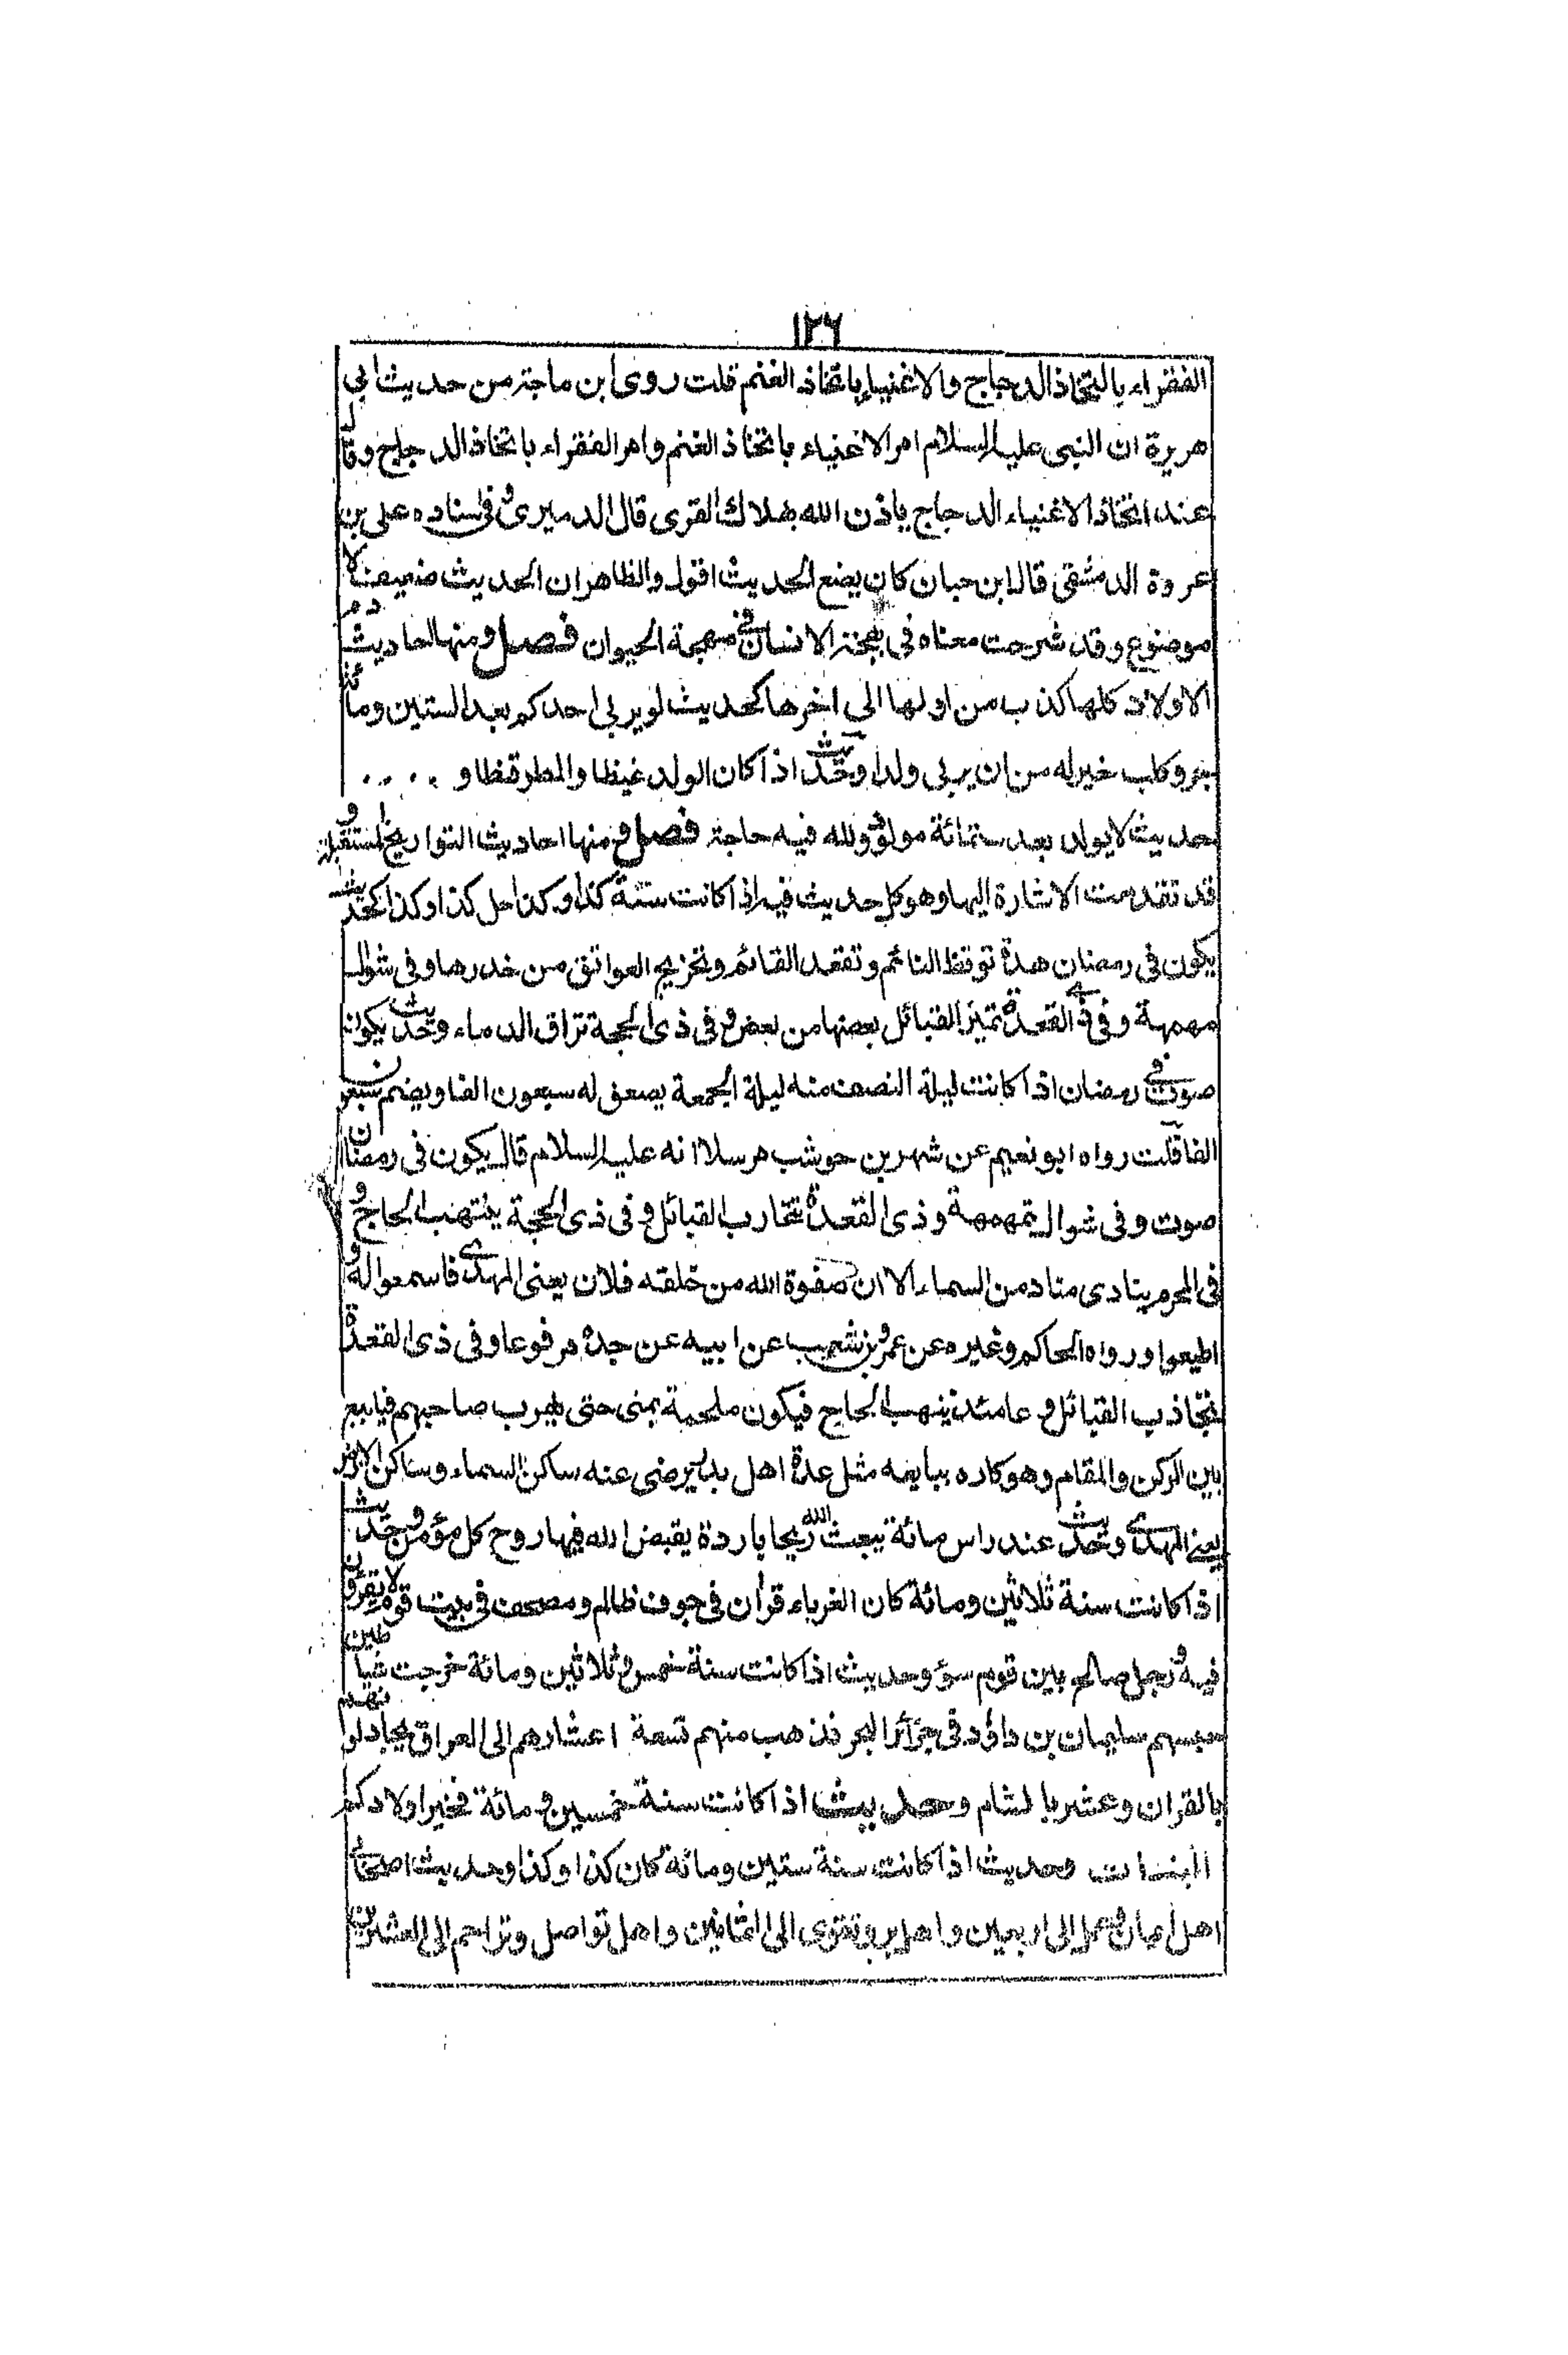 ١٢٦
الفقراء بالتخاذ الدجاج والاغنياء باتخاذ الغنم قلت روى ابن ماجة من حديث ابي
هريرة ان النبي عليه السلام امر الاغنياء باتخاذ الغنم وامر الفقراء باتخاذ الدجاج وقال
عند اتخاذ الاغنياء الدجاج ياذن الله بهلاك القرى قال الدميرى وفى اسناده على بن
عروة الدمشقى قال ابن حبان كان يضع الحديث اقول والظاهر ان الحديث ضعيف لا
موضوع وقد شرحت معناه في بهجة الانسان في مهجة الحيوان فصل ومنها احاديث ذم
الاولاد كلها كذب من اولها الى اخرها كحديث لو يربى احدكم بعد الستين ومائة
جرو كلب خير له من ان يربى ولدا وحديث اذا كان الولد غيظا والمطر قيظا و ....
حديث لا يولد بعد ستمائة مولود ولله فيه حاجة فصل ومنها احاديث التواريخ المستقبلة و
قد تقدمت الاشارة اليها وهو كل حديث فيه اذا كانت سنة كذا وكذا حل كذا وكذا كحديث
يكون فى رمضان هدة توقظ النائم وتقعد القائم وتخرج العواتق من خدرها وفى شوال
مهمهة وفى ذى القعدة تميز القبائل بعضها من بعض وفى ذى الحجة تراق الدماء وحديث يكون
صوت فى رمضان اذا كانت ليلة النصف منه ليلة الجمعة يصعق له سبعون الفا ويضم سبعون
الفا قلت رواه ابو نعيم عن شهر بن حوشب مرسلا انه عليه السلام قال يكون فى رمضان
صوت وفى شوال تمهمهة وذى القعدة تتحارب القبائل وفى ذى الحجة ينتهب الحاج و
فى المحرم ينادى مناد من السماء الا ان صفوة الله من خلقه فلان يعنى المهدى فاسمعوا له و
اطيعوا ورواه الحاكم وغيره عن عمرو بن شعيب عن ابيه عن جده مرفوعا وفى ذى القعدة
تتجاذب القبائل وعامئذ ينهب الحاج فيكون ملحمة بمنى حتى يهرب صاحبهم فيبايع
بين الركن والمقام وهو كاره يبايعه مثل عدة اهل بدر يرضى عنه ساكن السماء وساكن الارض
يعنى المهدى وحديث عند راس مائة يبعث الله ريحا باردة يقبض الله فيها روح كل مؤمن وحديث
اذا كانت سنة ثلاثين ومائة كان الغرباء قرأن فى جوف ظالم ومصحف فى بيت قوم لا يقرؤن
فيه ورجل صالح بين قوم سؤ وحديث اذا كانت سنة خمس وثلاثين ومائة خرجت شياطين
حبسهم سليمان بن داؤد فى جزائر البحر فذهب منهم تسعة اعشارهم الى العراق يجادلونهم
بالقران وعشر بالشام وحديث اذا كانت سنة خمسين ومائة فخير اولادكم
البنات وحديث اذا كانت سنة ستين ومائة كان كذا وكذا وحديث اصحابى
اهل ايمان وعمل الى اربعين واهل بر وتقوى الى الثمانين واهل تواصل وتراحم الى العشرين